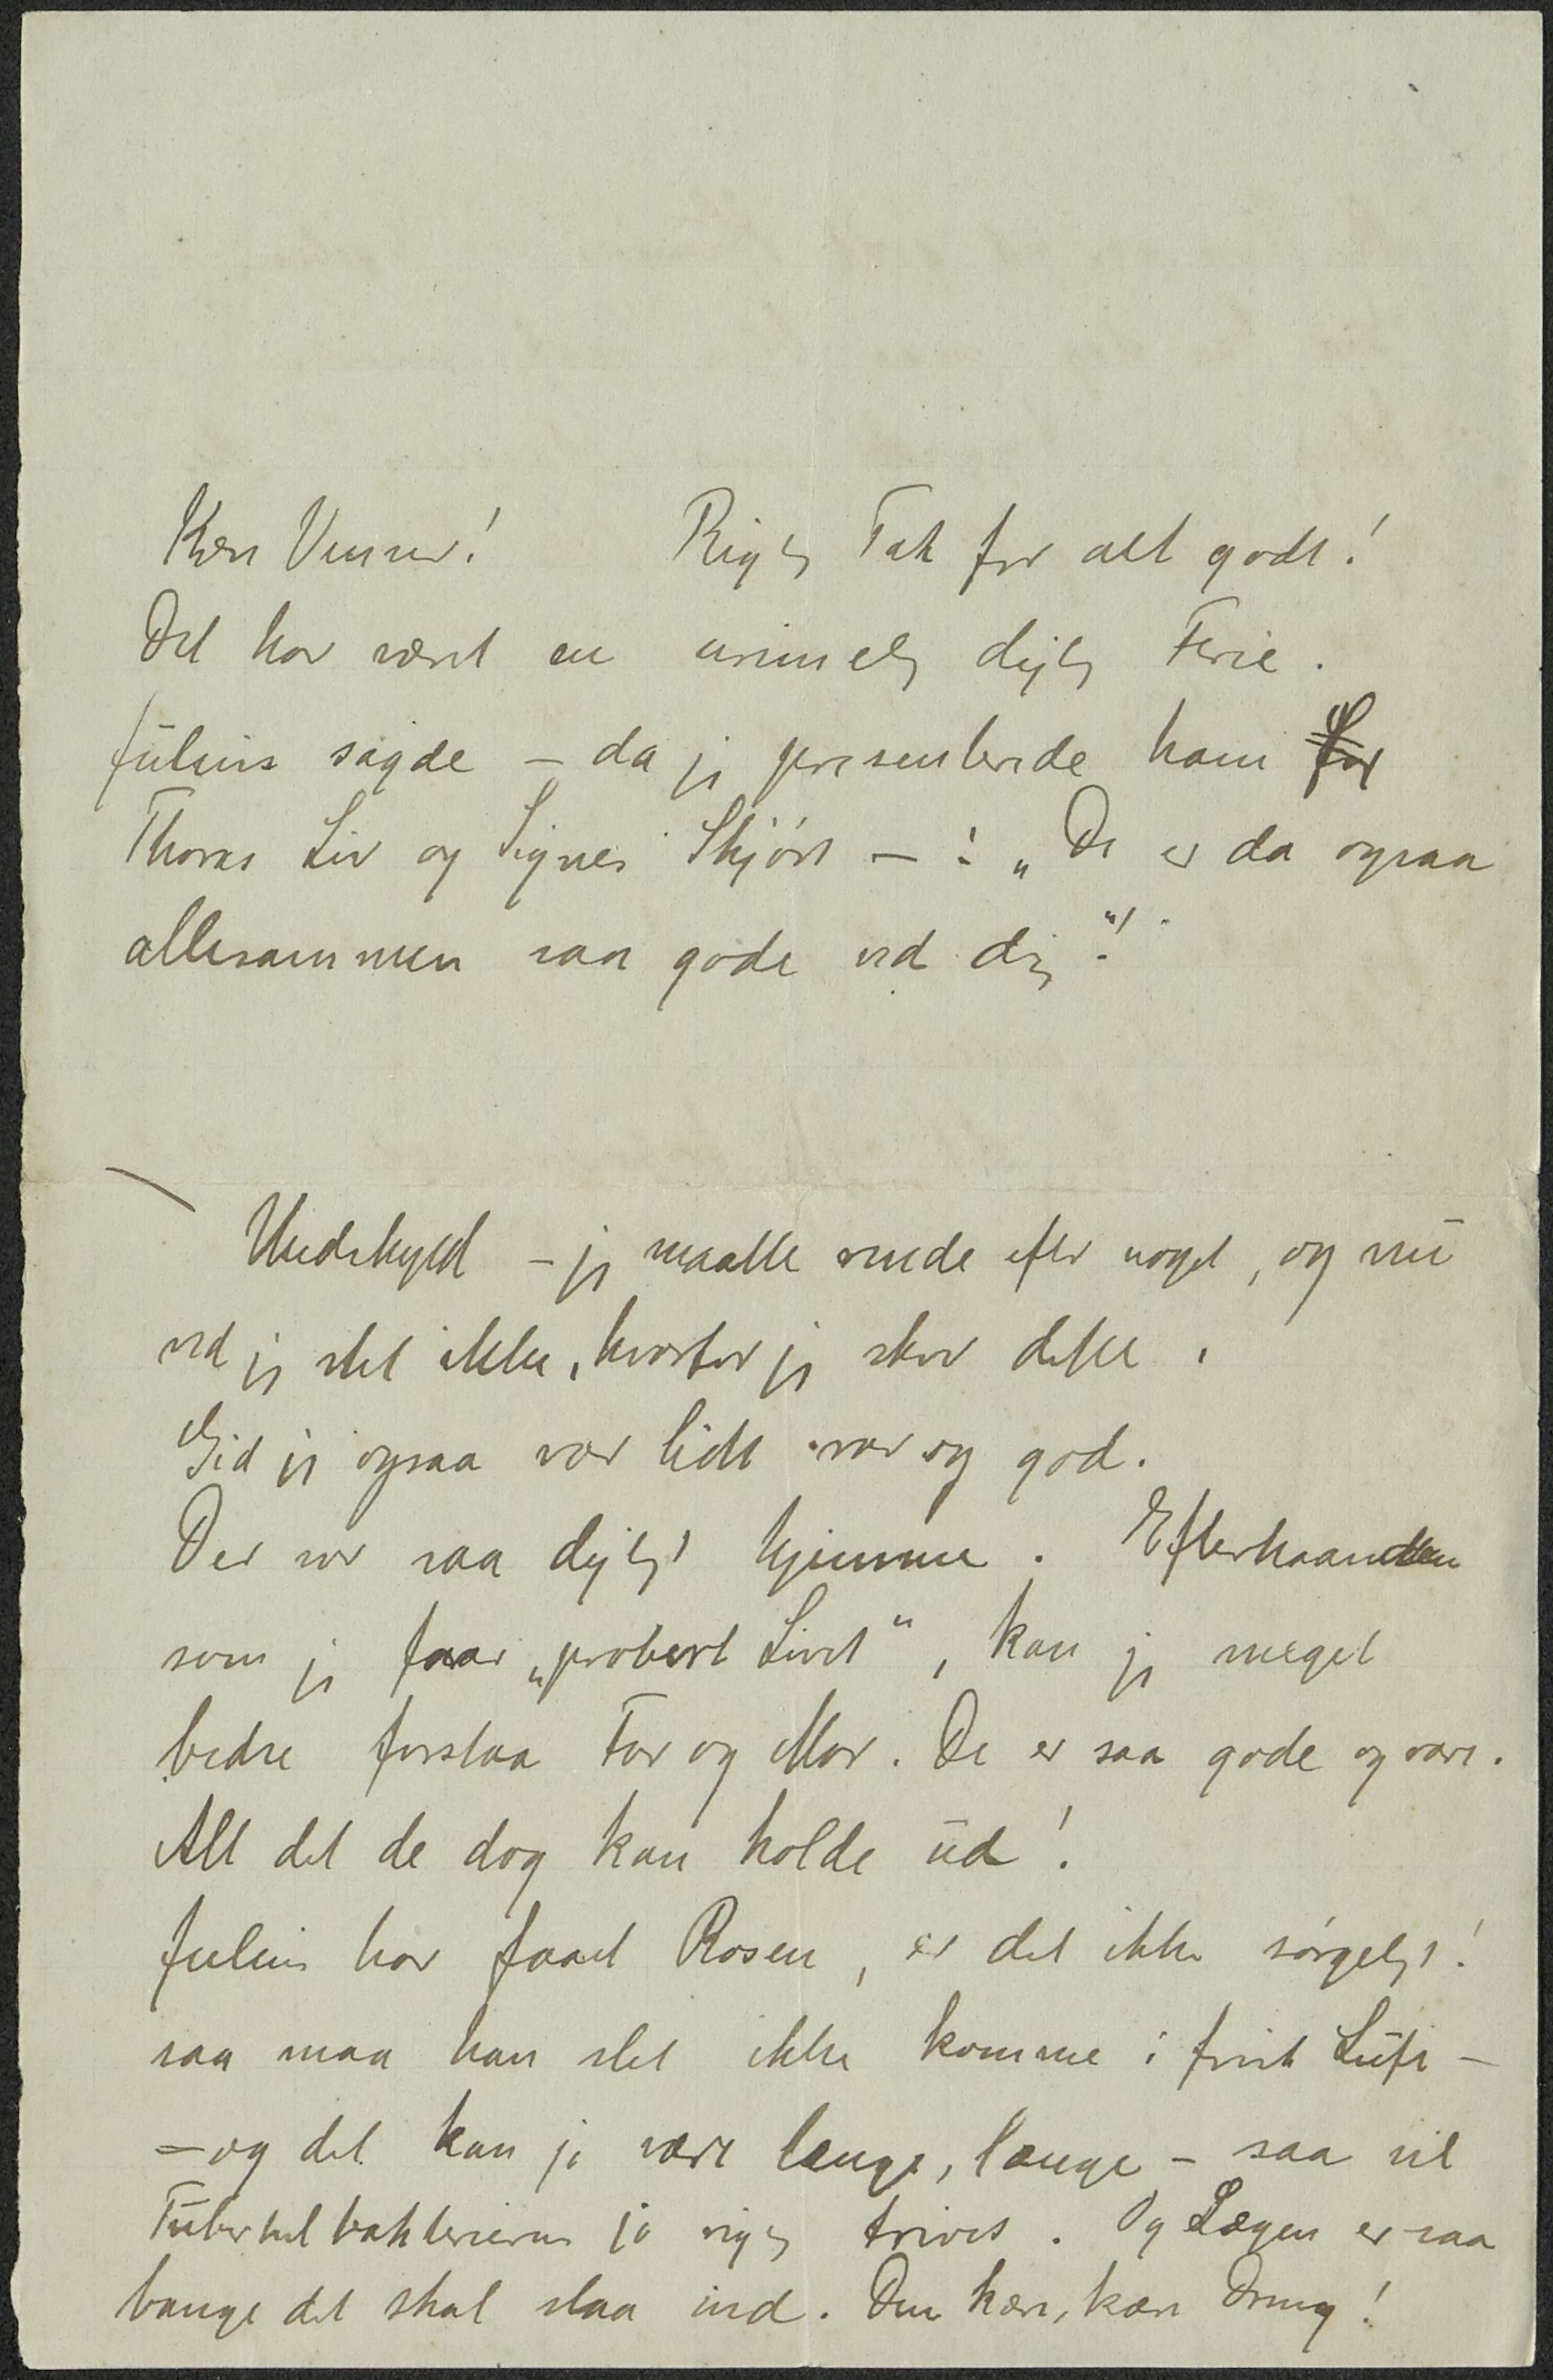 Kære Venner! Rigtig Tak for alt godt!
Det har været en urimelig dejlig Ferie.
Julius sagde – da jeg presenterede ham for
Thoras Liv og Signes Skjört – : „De er da ogsaa
allesammen saa gode ved dig"!
Undskyld – jeg maatte rende efter noget, og nu
ved jeg slet ikke, hvorfor jeg skrev dette.
Gid jeg ogsaa var lidt rar og god.
Der var saa dejligt hjemme. Efterhaanden
som jeg faar „prøvet Livet", kan jeg meget
bedre forstaa Far og Mor. De er saa gode og rare.
Alt det de dog kan holde ud!
Julius har faaet Rosen, er det ikke sørgeligt!
saa maa han slet ikke komme i frisk Luft –
– og det kan jo vare længe, længe – saa vil
Tuberkelbakterierne jo rigtig trives. Og Lægen er saa
bange det skal slaa ind. Den kære, kære Dreng!